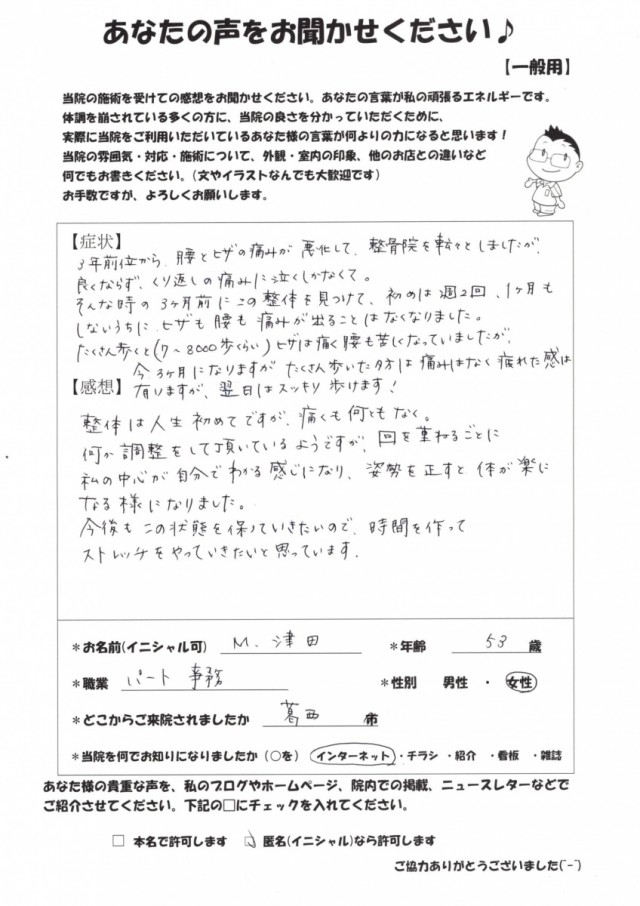 あなたの声をお聞かせください♪
【一般用】
当院の施術を受けての感想をお聞かせください。あなたの言葉が私の頑張るエネルギーです。
体調を崩されている多くの方に、当院の良さを分かっていただくために、
実際に当院をご利用いただいているあなた様の言葉が何よりの力になると思います！
当院の雰囲気・対応・施術について、外観・室内の印象、他のお店との違いなど
何でもお書きください。（文やイラストなんでも大歓迎です）
お手数ですが、よろしくお願いします。
【症状】
3年前位から、腰とヒザの痛みが悪化して、整骨院を転々としましたが、
良くならず、くり返しの痛みに泣くしかなくて。
そんな時の3ヶ月前にこの整体を見つけて、初めは週2回、1ヶ月も
しないうちに、ヒザも腰も痛みが出ることはなくなりました。
たくさん歩くと（7〜8000歩くらい）ヒザは痛く腰も苦しくなっていましたが、
今3ヶ月になりますがたくさん歩いた夕方は痛みはなく疲れた感は
【感想】有りますが、翌日はスッキリ歩けます！
整体は人生初めてですが、痛くも何ともなく。
何か調整をして頂いているようですが、回を重ねるごとに
私の中心が自分でわかる感じになり、姿勢を正すと体が楽に
なる様になりました。
今後もこの状態を保っていきたいので、時間を作って
ストレッチをやっていきたいと思っています。
＊お名前(イニシャル可) M.津田 ＊年齢 53 歳
＊職業 パート事務 ＊性別 男性 ・ 女性
＊どこからご来院されましたか 葛西 市
＊当院を何でお知りになりましたか（○を） インターネット ・チラシ ・紹介 ・看板 ・雑誌
あなた様の貴重な声を、私のブログやホームページ、院内での掲載、ニュースレターなどで
ご紹介させてください。下記の□にチェックを入れてください。
□ 本名で許可します ☑ 匿名(イニシャル)なら許可します
ご協力ありがとうございました(^-^)